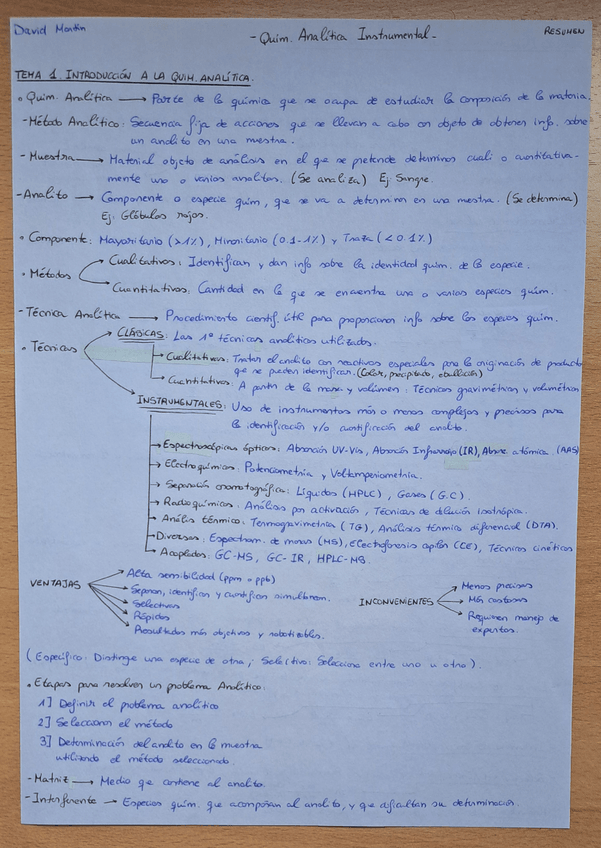 David Martín
- Quim. Analítica Instrumental -
RESUMEN
TEMA 1. INTRODUCCIÓN A LA QUIM. ANALÍTICA.
• Quim. Analítica → Parte de la química que se ocupa de estudiar la composición de la materia.
- Método Analítico: Secuencia fija de acciones que se llevan a cabo con objeto de obtener info. sobre
un analito en una muestra.
- Muestra → Material objeto de análisis en el que se pretende determinar cuali o cuantitativa-
mente uno o varios analitos. (Se analiza) Ej Sangre.
- Analito → Componente o especie quim, que se va a determinar en una muestra. (Se determina)
Ej: Glóbulos rojos.
• Componente: Mayoritario (>1%), Minoritario (0.1-1%) y Traza (<0.1%)
• Métodos
Cualitativos: Identifican y dan info sobre la identidad quim. de la especie.
Cuantitativos: Cantidad en la que se encuentra una o varias especies quim.
- Técnica Analítica → Procedimiento cientif. útil para proporcionar info sobre las especies quim.
• Técnicas
CLÁSICAS: Las 1º técnicas analíticas utilizadas.
Cualitativas: Tratar el analito con reactivos especiales para la originación de producto
que se pueden identificar. (Color, precipitado, ebullición)
Cuantitativas: A partir de la masa y volúmen: Técnicas gravimétricas y volumétricas
INSTRUMENTALES: Uso de instrumentos más o menos complejos y precisos para
la identificación y/o cuantificación del analito.
→ Espectroscópicas ópticas: Absorción UV-Vis, Absorción Infrarrojo (IR), Absorc. atómica (AAS)
→ Electroquímicas: Potenciometría y Voltamperiometría.
→ Separación cromatográfica: Líquidos (HPLC), Gases (G.C).
→ Radioquímicas: Análisis por activación, Técnicas de dilución isotrópica.
→ Anális térmico: Termogravimetría (TG), Análisis térmico diferencial (DTA).
→ Diversas: Espectrom. de masas (MS), Electroforesis capilar (CE), Técnicas cinéticas
→ Acopladas: GC-MS, GC-IR, HPLC-MS.
VENTAJAS
Alta sensibilidad (ppm o ppb)
Separan, identifican y cuantifican simultáneam.
Selectivas
Rápidas
Resultados más objetivos y robotizables.
INCONVENIENTES
Menos precisas
Más costosas
Requieren manejo de
expertos.
(Específico: Distingue una especie de otra; Selectivo: Selecciona entre uno u otro).
• Etapas para resolver un problema Analítico.
1] Definir el problema analítico
2] Seleccionar el método
3] Determinación del analito en la muestra
utilizando el método seleccionado.
- Matriz → Medio que contiene al analito.
- Interferente → Especies quím. que acompañan al analito, y que dificultan su determinación.